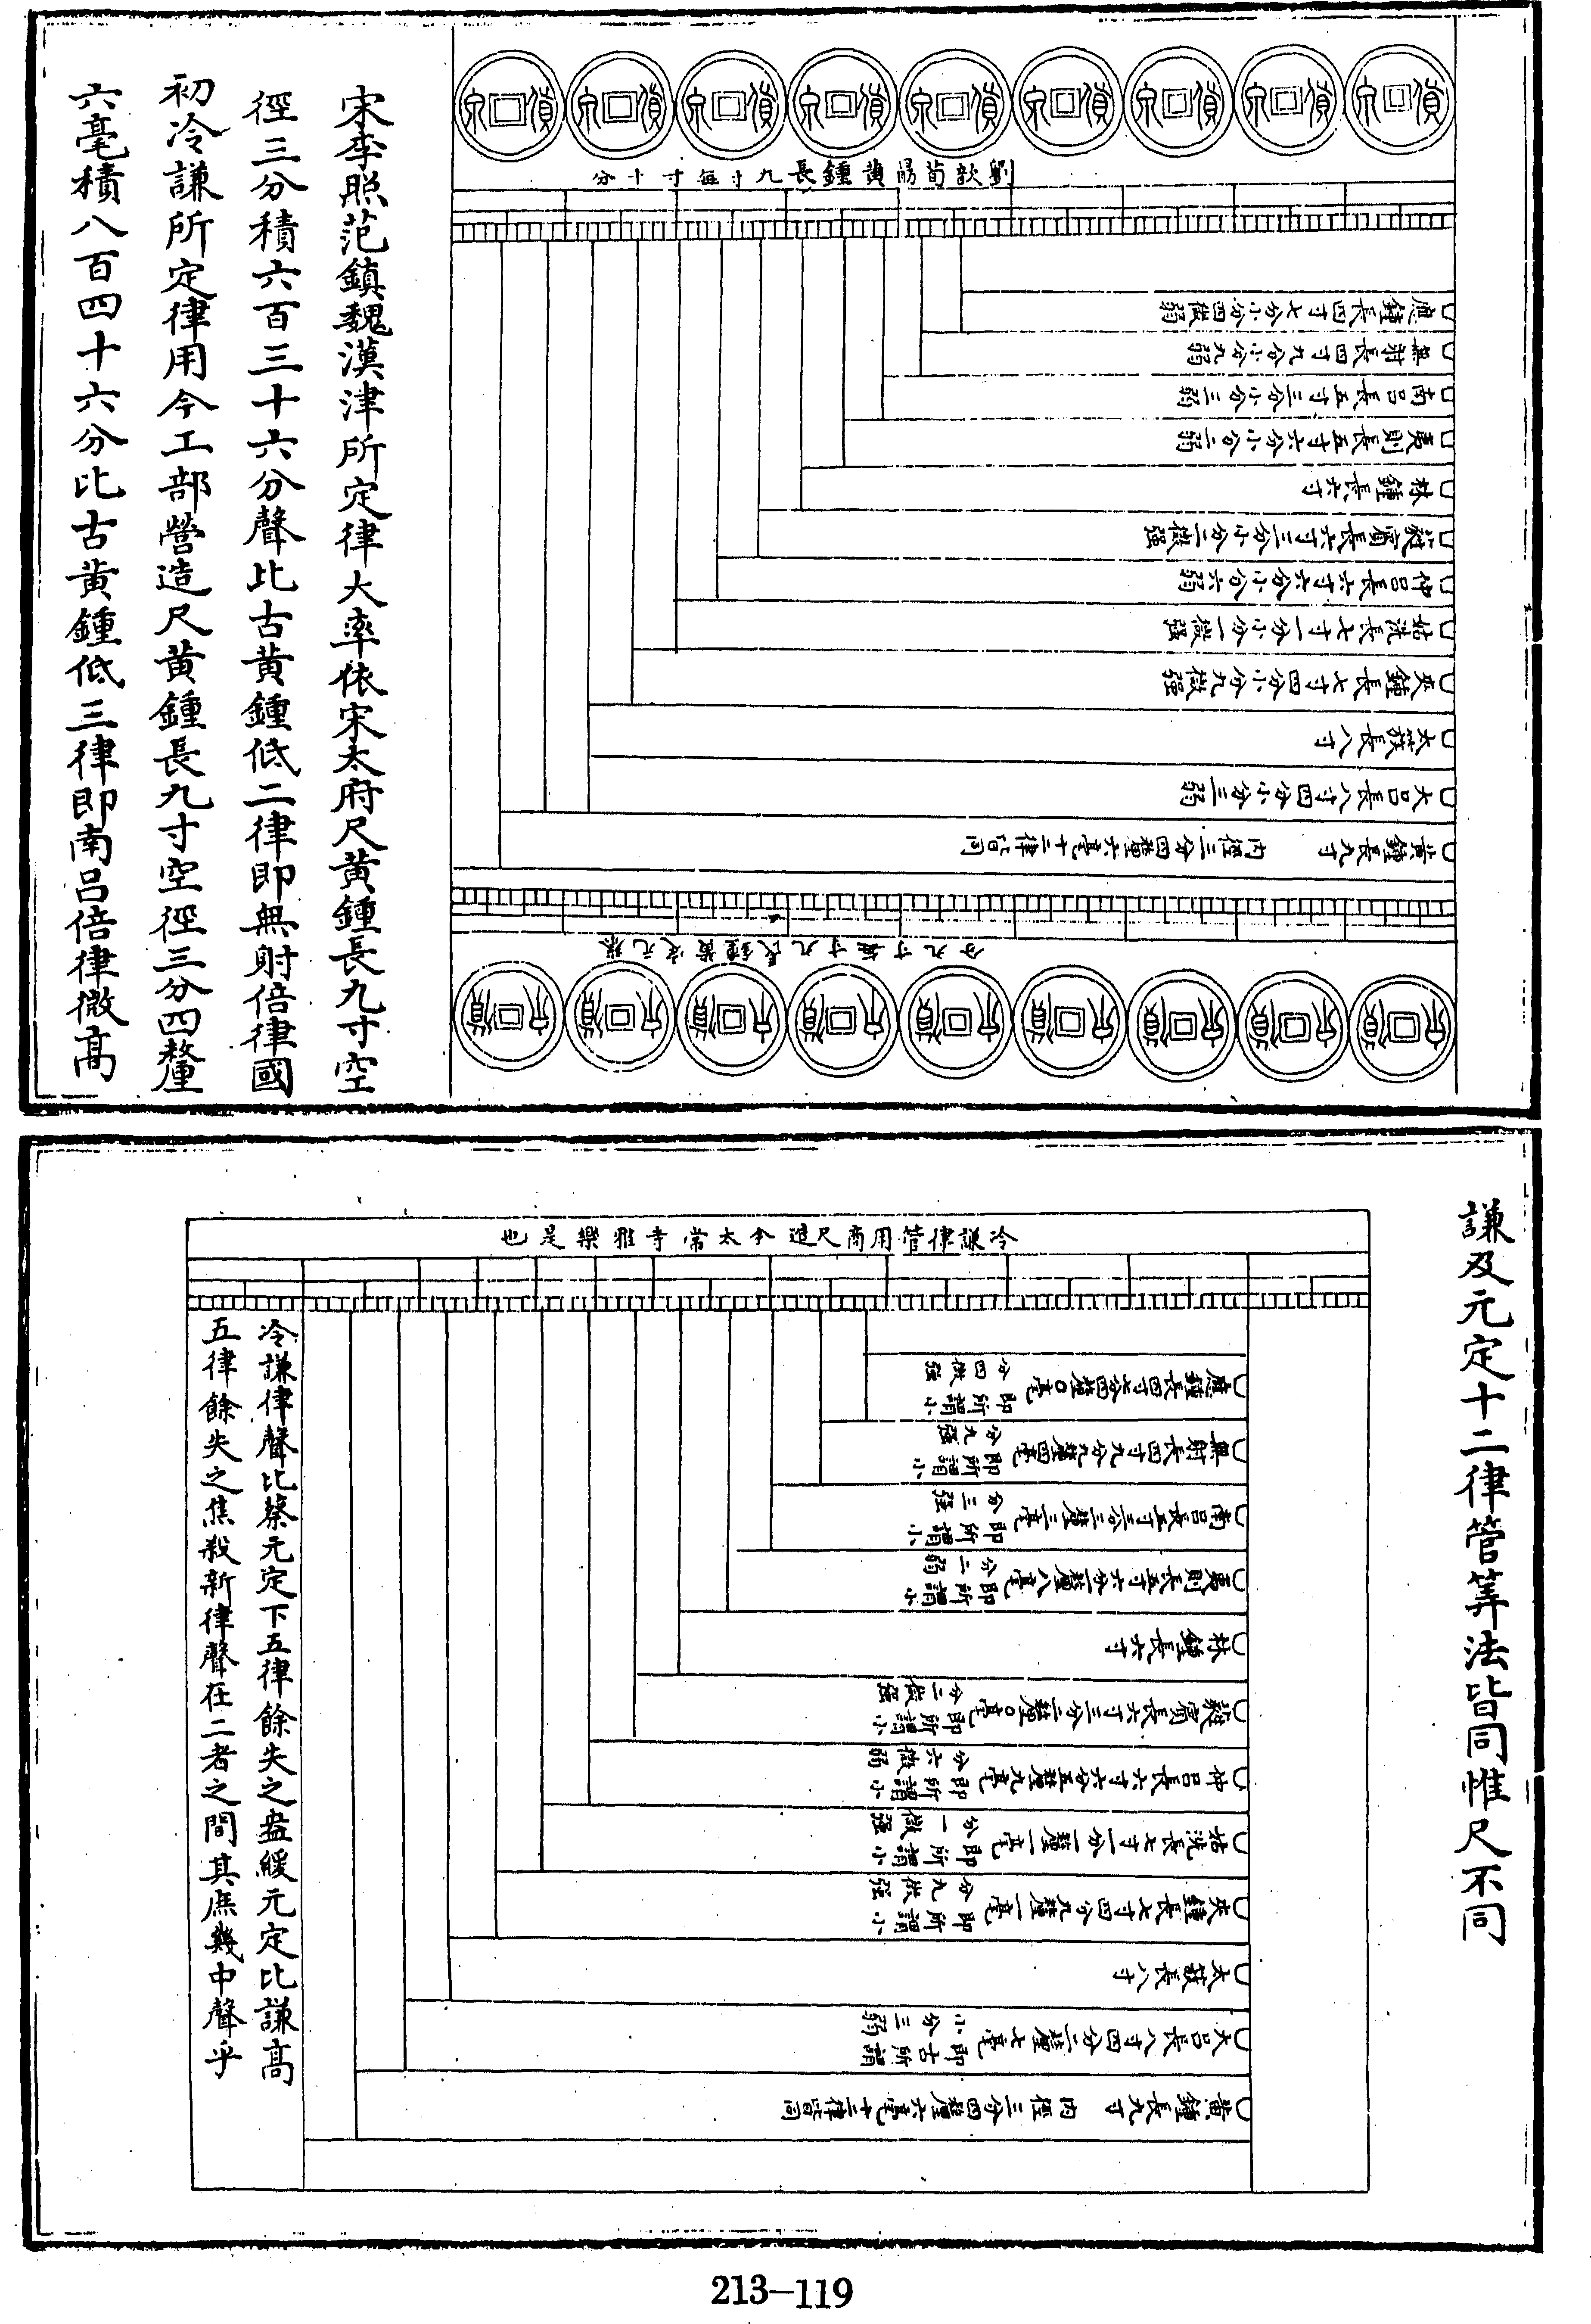 劉歆荀勗黃鍾長九寸每寸十分
應鍾長四寸七分小分四微弱
無射長四寸九分小分九弱
南呂長五寸三分小分三弱
夷則長五寸六分小分二弱
林鍾長六寸
蕤賓長六寸三分小分二微強
仲呂長六寸六分小分六弱
姑洗長七寸一分小分一微強
夾鍾長七寸四分小分九微強
太蔟長八寸
大呂長八寸四分小分三弱
黃鍾長九寸 內徑三分四釐六毫十二律皆同
蔡元定黃鍾長九寸每寸九分
宋李照范鎮魏漢津所定律大率依宋太府尺黃鍾長九寸空
徑三分積六百三十六分聲比古黃鍾低二律即無射倍律國
初冷謙所定律用今工部營造尺黃鍾長九寸空徑三分四釐
六毫積八百四十六分比古黃鍾低三律即南呂倍律微高
謙及元定十二律管算法皆同惟尺不同
冷謙律管用商尺造今太常寺雅樂是也
應鍾長四寸七分四釐〇毫即所謂小分四微強
無射長四寸九分九釐四毫即所謂小分九強
南呂長五寸三分三釐三毫即所謂小分三強
夷則長五寸六分一釐八毫即所謂小分二弱
林鍾長六寸
蕤賓長六寸三分二釐〇毫即所謂小分二微強
仲呂長六寸六分五釐九毫即所謂小分六微弱
姑洗長七寸一分一釐一毫即所謂小分一微強
夾鍾長七寸四分九釐一毫即所謂小分九微強
太蔟長八寸
大呂長八寸四分二釐七毫即古所謂小分三弱
黃鍾長九寸 內徑三分四釐六毫十二律皆同
冷謙律聲比蔡元定下五律餘失之盎緩元定比謙高
五律餘失之焦殺新律聲在二者之間其庶幾中聲乎
213-119